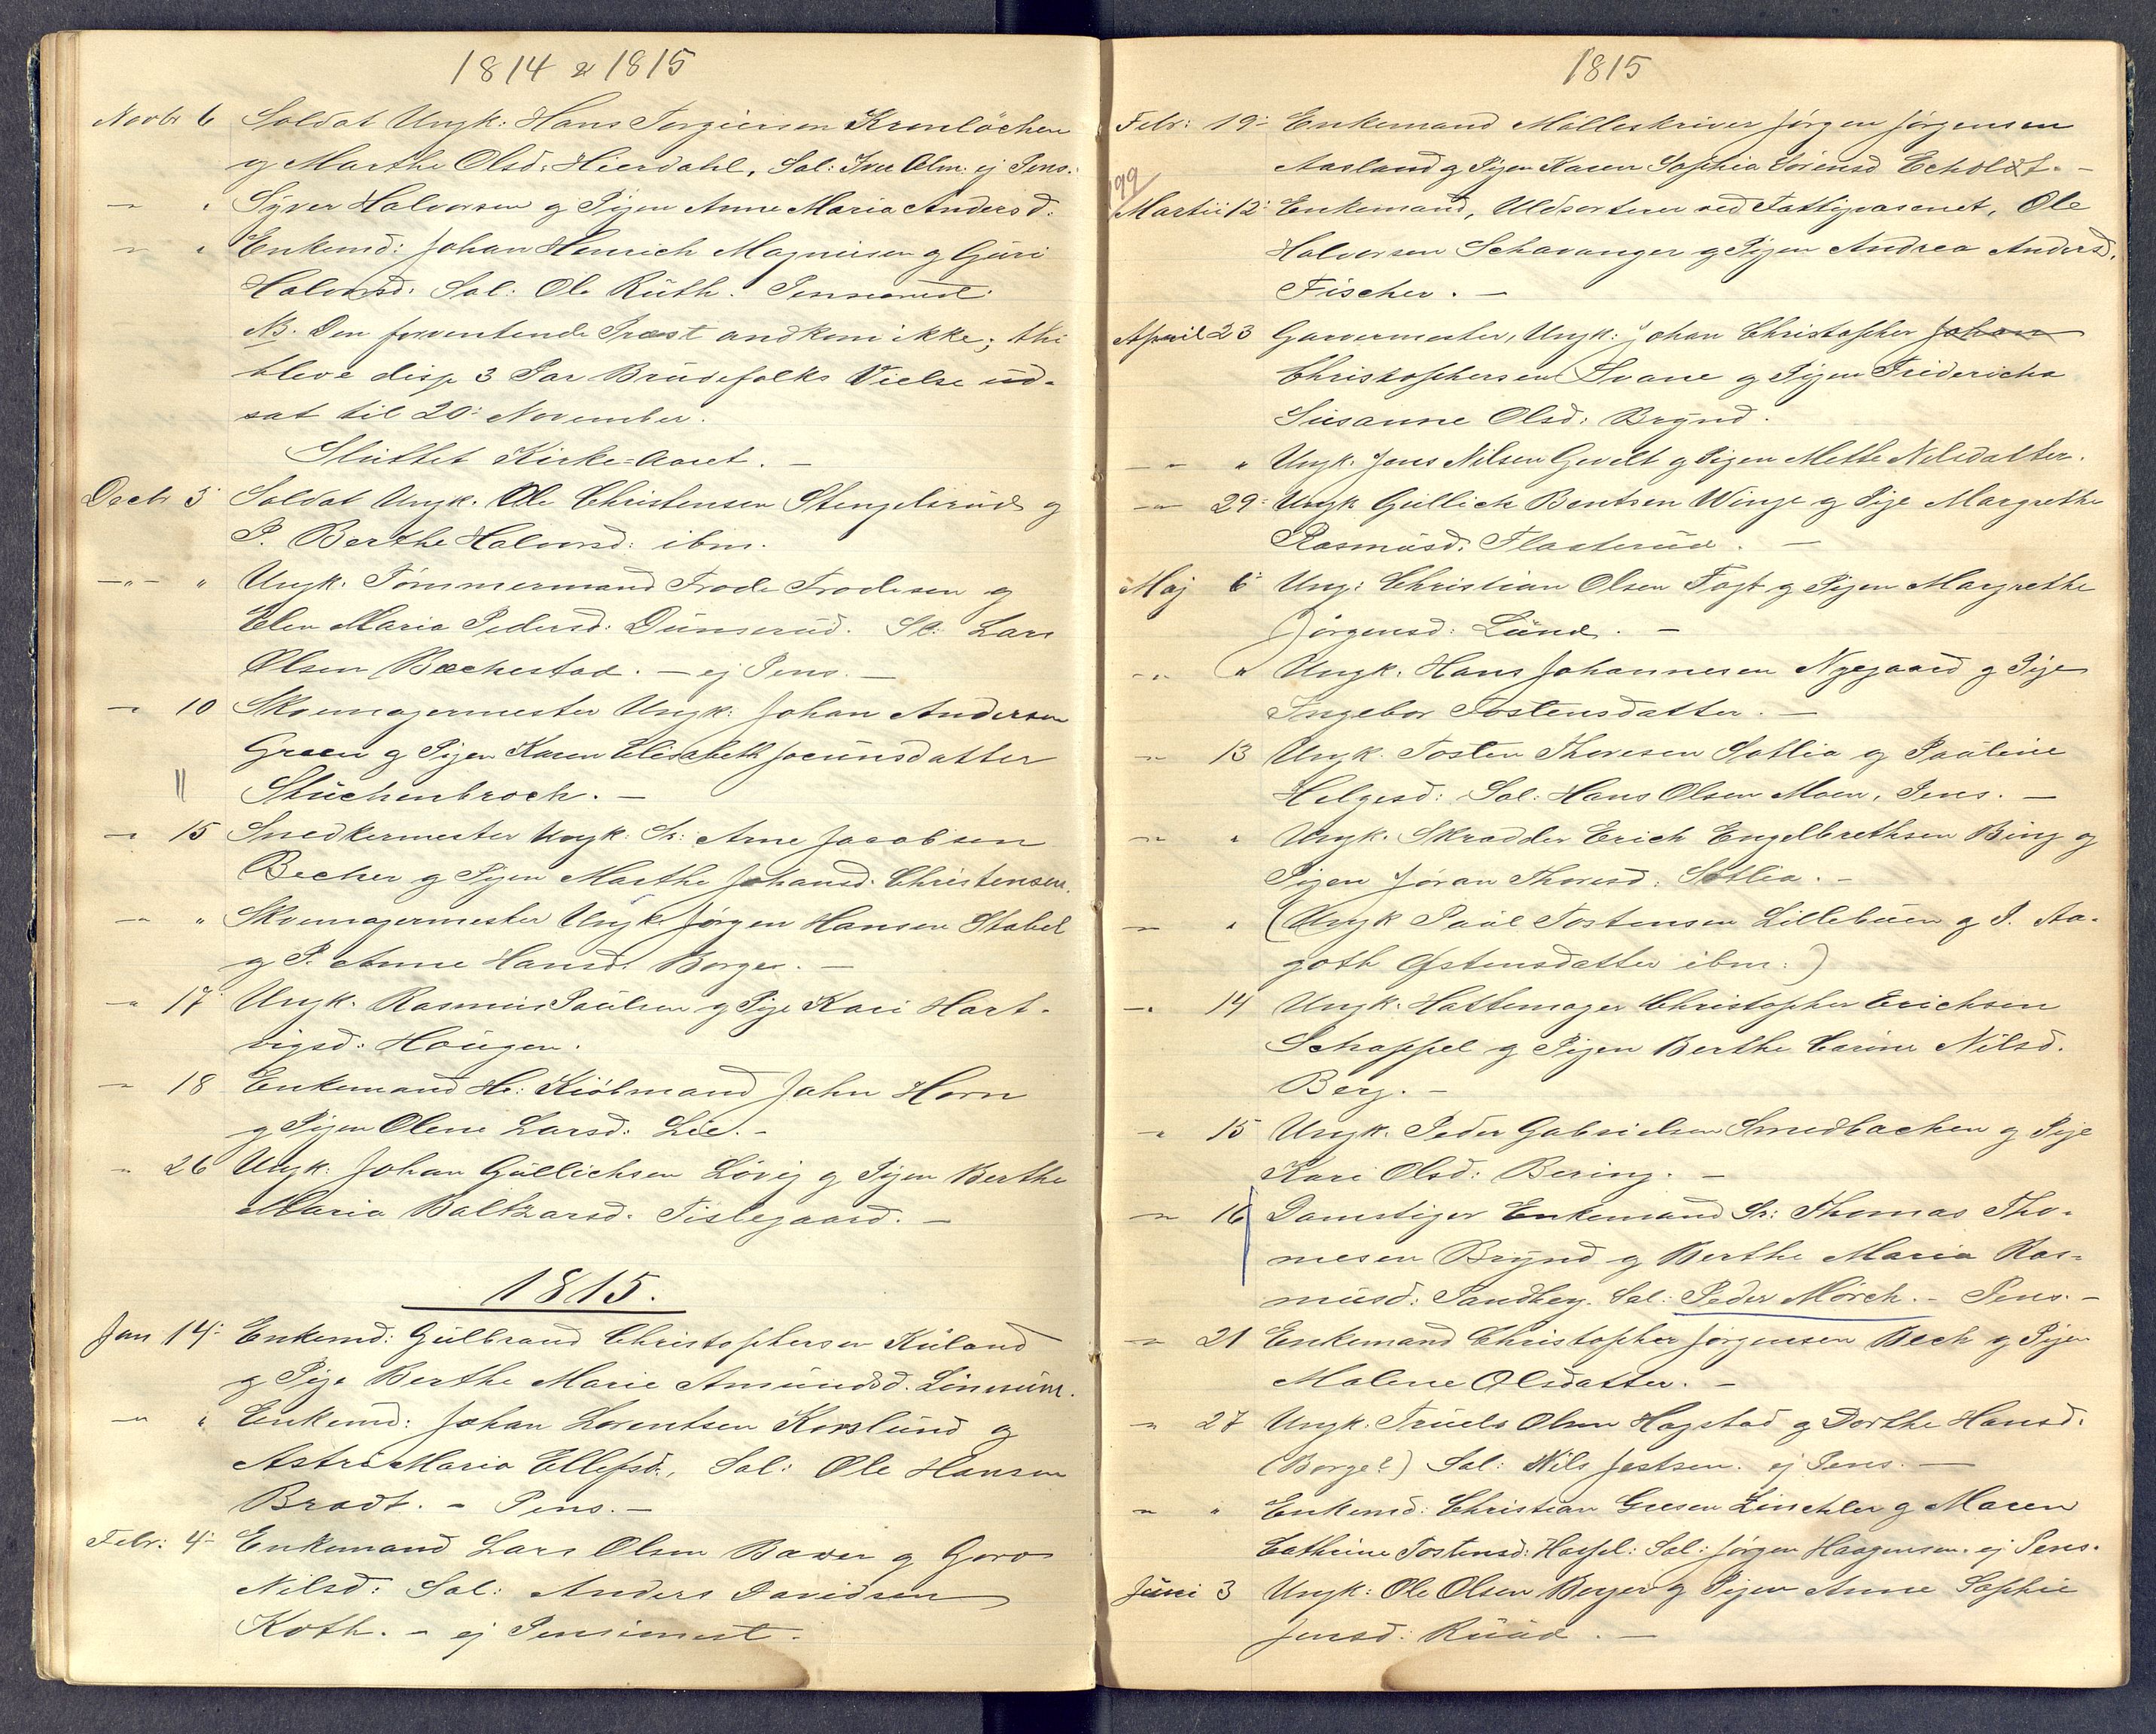 1814 & 1815
Novbr 6 Soldat Ungk: Hans Torgiersen Kronløchen
g Marthe Olsd: Hierdahl, Sal: Iver Olm: ej Pens:
— " Syver Halvorsen g Pigen Anne Maria Andersd:
— " Enkemd: Johan Henrich Magnusen g Guri
Halvorsd: Sal: Ole Rüth. Pensionist.
NB. Den forventende Præst andkom ikke; thi
bleve disse 3 Par Brüdefolks Vielse üd-
sat til 20: November.
Sluttet Kirke-Aaret. —
Decbr 3 Soldat Ungk. Ole Christensen Stengelsrüd g
P. Berthe Halvorsd: ibm.
—"— " Ungk. Tømmermand Frode Frodesen g
Elen Maria Pedersd: Dünserüd. Sl: Lars
Olsen Bæchestad. — ej Pens. —
— 10 Skoemagermester Ungk: Johan Andersen
Green g Pigen Karen Elisabeth Jocumsdatter
|| Stüchenbroch. —
— 15 Snedkermester Ungk: Sr: Arne Jacobsen
Becher g Pigen Marthe Johansd. Christensen.
— " Skoemagermester Ungk: Jørgen Hansen Stabel
g P. Anne Hansd. Borger. —
— 17 Ungk. Rasmus Paülsen g Pige Kari Hart-
vigsd: Haügen.
— 18 Enkemand Hr: Kiøbmand John Horn
g Pigen Olene Larsd: Lie. —
— 26 Ungk. Johan Güllichsen Løvig g Pigen Berthe
Maria Baltzarsd. Tislegaard. —
1815.
Jan 14: Enkemd: Gülbrand Christophersen Rüland
g Pige Berthe Marie Amündsd. Linnüm.
— " Enkemd: Johan Lorentsen Korslünd g
Astri Maria Ellefsd., Sal: Ole Hansen
Bradt. — Pens. —
Febr: 4: Enkemand Lars Olsen Baxer g Goro
Nilsd: Sal: Anders Davidsen
Koth. — ej Pensionist.
1815
Febr: 19: Enkemand Mølleskriver Jørgen Jørgensen
Aasland g Pigen Karen Sophia Sørensd Echoldt. —
99
Martii 12: Enkemand, Uldsorterer ved Fattigvæsenet, Ole
Halvorsen Schavanger g Pigen Andrea Andersd.
Fischer. —
April 23 Garvermester, Ungk: Johan Christopher Johan
Christophersen Svane g Pigen Fridericha
Süsanne Olsd: Brynd.
— " Ungk. Jens Nilsen Gevelt g Pigen Mette Nilsdatter.
— 29: Ungk Güllich Bentsen Winge g Pige Margrethe
Rasmüsd: Flasterüd. —
Maj 6: Ung: Christian Olsen Fogt g Pigen Margrethe
Jørgensd: Lünd. —
— " Ungk. Hans Johannesen Nygaard g Pige
Ingebor Tostensdatter. —
— 13 Ungk. Tosten Thoresen Satlia g Paüline
Helgesd: Sal: Hans Olsen Moen, Pens. —
— " Ungk. Skradder Erich Engelbrethsen Bing g
Pigen Jøran Thoresd: Sotlia. —
— " (Ungk Paül Tostensen Lillebüen g P. Aa-
goth Østensdatter ibm:)
— 14 Ungk. Hattemager Christopher Erichsen
Schappel g Pigen Berthe Carine Nilsd.
Berg. —
— 15 Ungk. Peder Gabrielsen Smedbachen g Pige
Kari Olsd: Bering. —
— 16 Danestiger Enkemand Sr: Thomas Tho-
mesen Brynd g Berthe Maria Ras-
müsd: Sandbey. Sal: Peder Mørch. — Pens. —
— 21 Enkemand Christopher Jørgensen Bech g Pigen
Malene Olsdatter. —
— 27 Ungk. Trüels Olsen Hagstad g Dorthe Hansd.
(Borge?) Sal: Nils Jostsen. ej Pens. —
— " Enkemd: Christian Gresen Zinchler g Maren
Cathrine Tostensd: Hassel: Sal: Jørgen Haagensen. ej Pens.
Jüni 3 Ungk: Ole Olsen Berger g Pigen Anne Sophie
Jensd: Rüüd. —